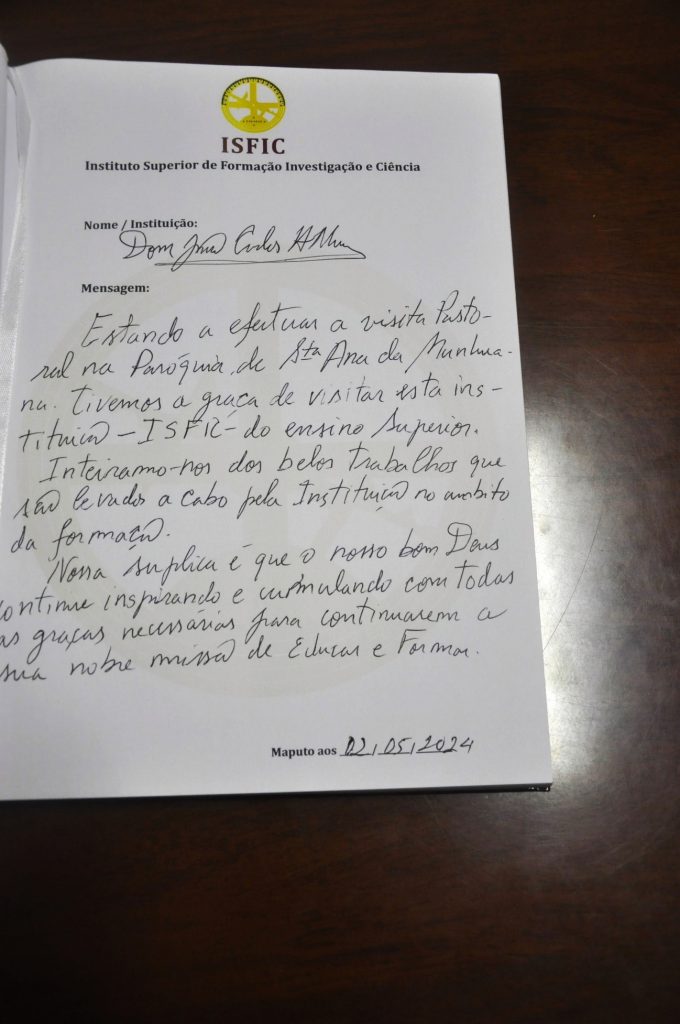 ISFIC
Instituto Superior de Formação Investigação e Ciência
Nome / Instituição:
Dom João Carlos
Mensagem:
Estando a efectuar a visita Pasto-
ral na Paróquia de Sta Ana da Munhua-
na. Tivemos a graça de visitar esta ins-
tituição - ISFIC - do ensino Superior.
Inteiramo-nos dos belos trabalhos que
são levados a cabo pela Instituição no âmbito
da formação.
Nossa súplica é que o nosso bom Deus
continue inspirando e cumulando com todas
as graças necessárias para continuarem a
sua nobre missão de Educar e Formar.
Maputo aos 02/05/2024